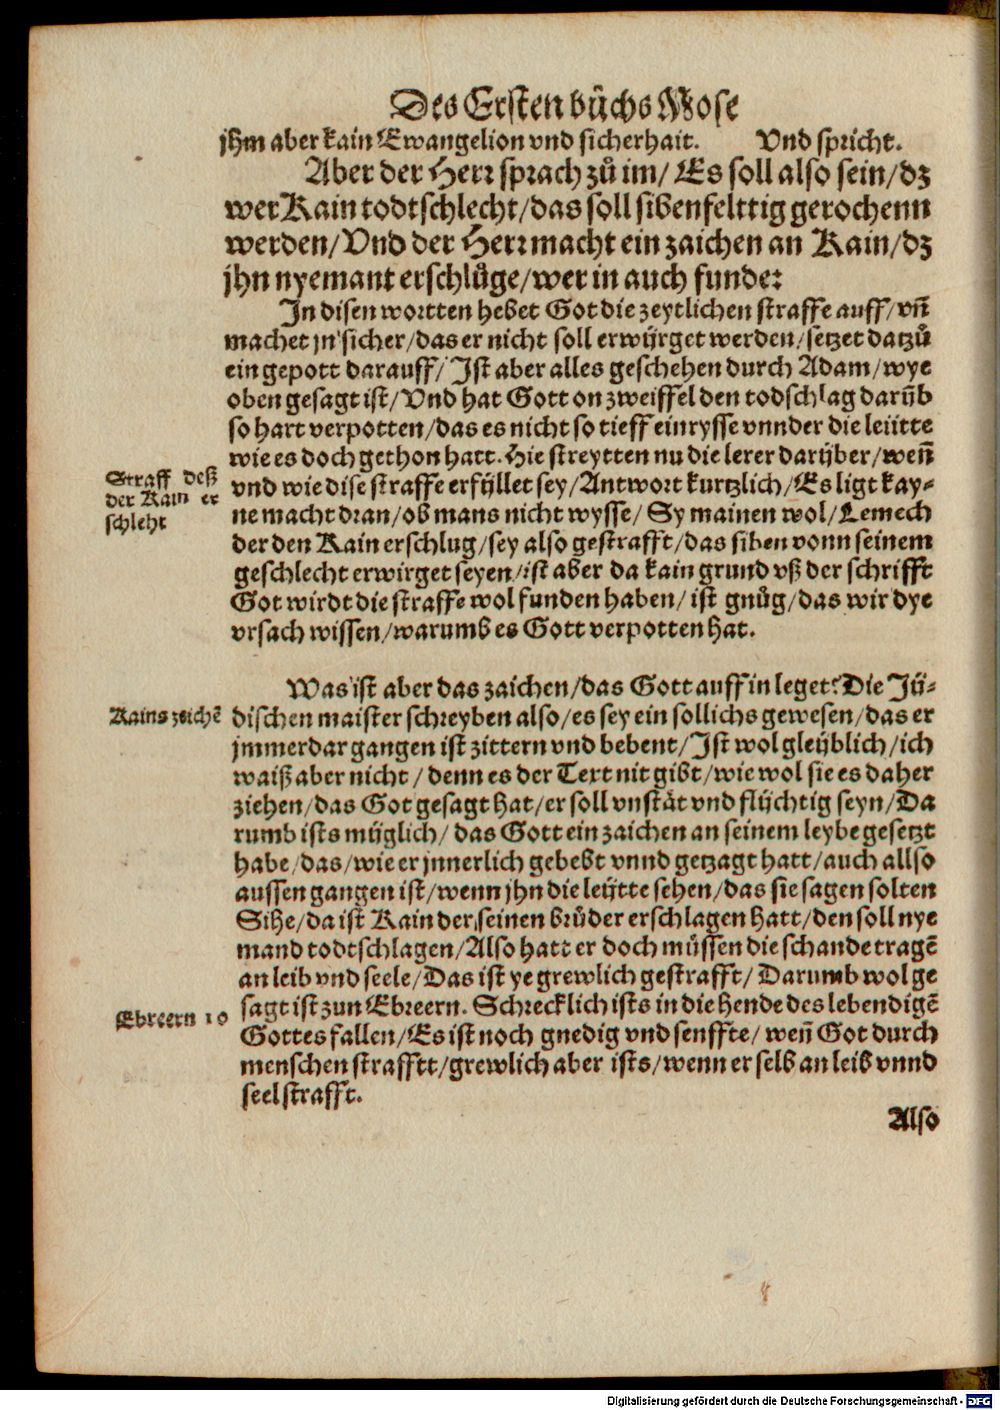 Des Ersten bůchs Mose
jhm aber kain Ewangelion vnd sicherhait. Vnd spricht.
Aber der Herr sprach zů im/ Es soll also sein/dz
wer Kain todtschlecht/das soll sibenfelttig gerochenn
werden/Vnd der Herr macht ein zaichen an Kain/dz
jhn nyemant erschlůge/wer in auch funde:
In disen wortten hebet Got die zeytlichen straffe auff/vñ
machet jn sicher/das er nicht soll erwürget werden/setzet datzů
ein gepott darauff/Ist aber alles geschehen durch Adam/wye
oben gesagt ist/Vnd hat Gott on zweiffel den todschlag darüb
so hart verpotten/das es nicht so tieff einrysse vnnder die leütte
wie es doch gethon hatt. Hie streytten nu die lerer darüber/weñ
Straff deß
der Kain er
schleht
vnd wie dise straffe erfüllet sey/Antwort kurtzlich/Es ligt kay-
ne macht dran/ob mans nicht wysse/Sy mainen wol/Lemech
der den Kain erschlug/sey also gestrafft/das siben vonn seinem
geschlecht erwirget seyen/ist aber da kain grund vß der schrifft
Got wirdt die straffe wol funden haben/ist gnůg/das wir dye
vrsach wissen/warumb es Gott verpotten hat.
Was ist aber das zaichen/das Gott auff in leget? Die Jü-
Kains zeichē
dischen maister schreyben also/es sey ein sollichs gewesen/das er
jmmerdar gangen ist zittern vnd bebent/Ist wol gleüblich/ich
waiß aber nicht/denn es der Text nit gibt/wie wol sie es daher
ziehen/das Got gesagt hat/er soll vnstät vnd flüchtig seyn/Da
rumb ists müglich/das Gott ein zaichen an seinem leybe gesetzt
habe/das/wie er jnnerlich gebebt vnnd getzagt hatt/auch allso
aussen gangen ist/wenn jhn die leütte sehen/das sie sagen solten
Sihe/da ist Kain der seinen brůder erschlagen hatt/den soll nye
mand todtschlagen/Also hatt er doch müssen die schande tragē
an leib vnd seele/Das ist ye grewlich gestrafft/Darumb wol ge
Ebreern 10
sagt ist zun Ebreern. Schrecklich ists in die hende des lebendigē
Gottes fallen/Es ist noch gnedig vnd senffte/weñ Got durch
menschen strafftt/grewlich aber ists/wenn er selb an leib vnnd
seel strafft.
Also
Digitalisierung gefördert durch die Deutsche Forschungsgemeinschaft - DFG